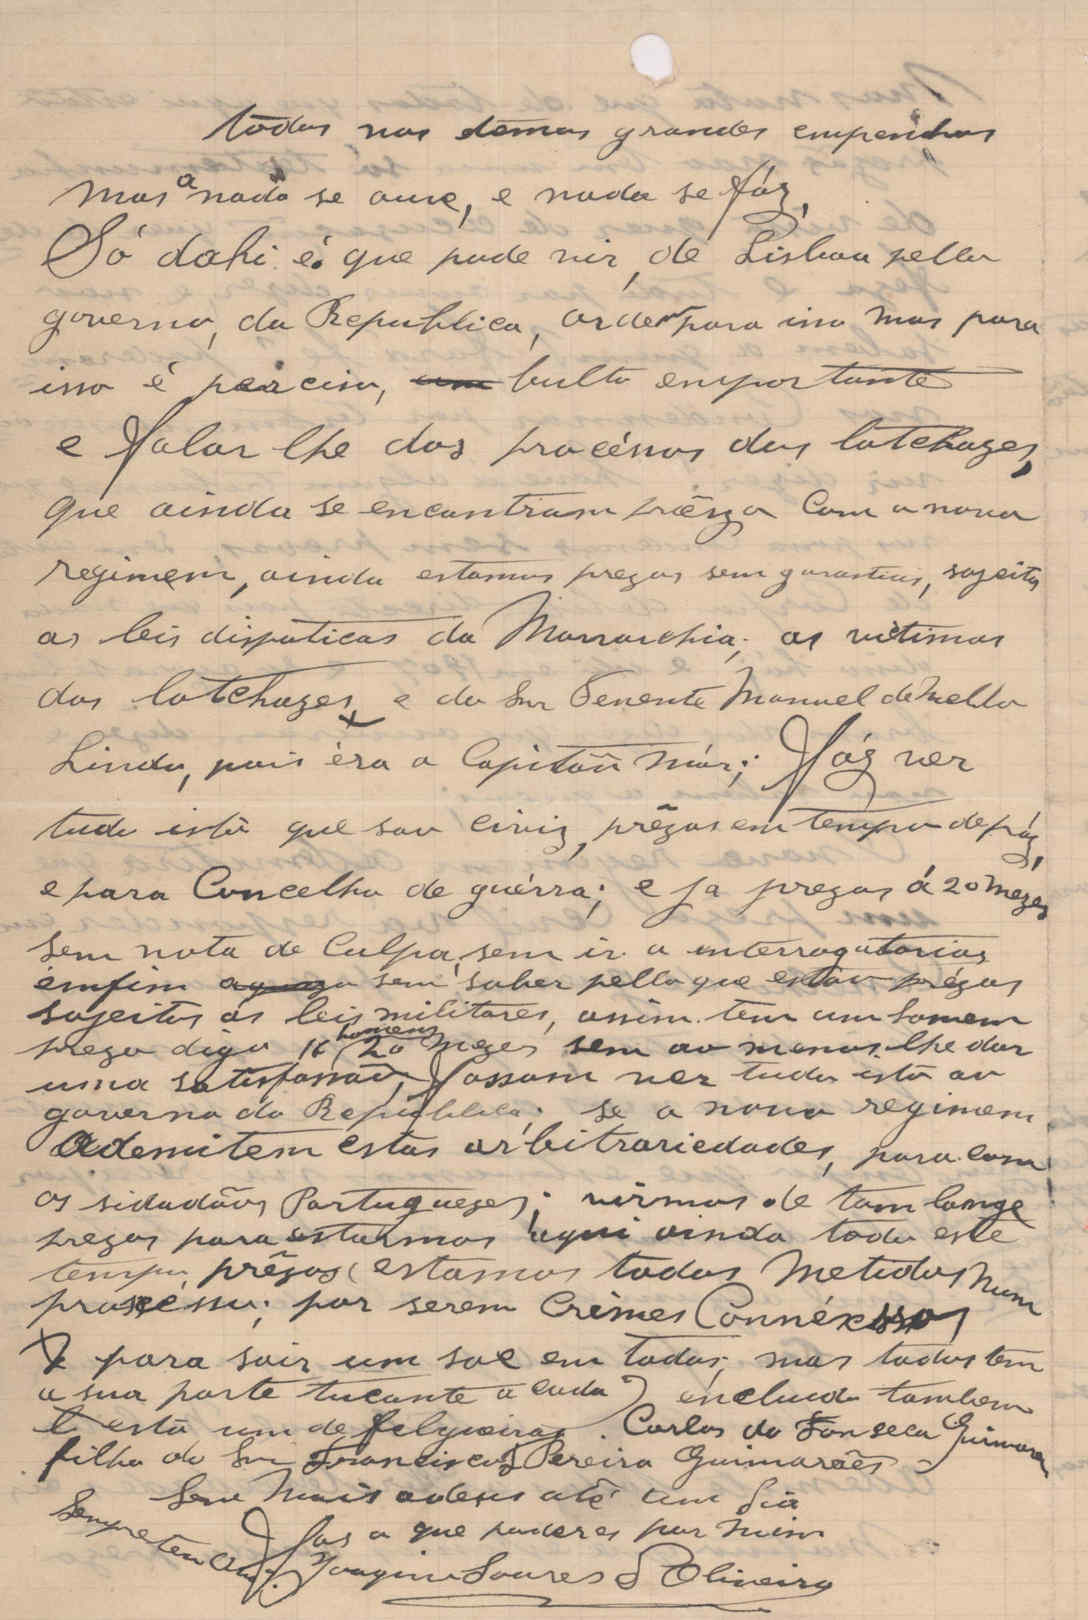 todos nos temos grandes empenhos
mas a nada se ouve, e nada se fáz,
Só dahi é que pode vir, de Lisboa pello
governo, da Republica, ordem para isso mas para
isso é percizo, um bulto emportante
e falar lhe dos procéssos dos latchazes,
que ainda se encontram prezza com o novo
regimem, ainda estamos prezos sem garantias, sogeitos
as leis dispoticas da Monarchia; as vitimas
dos latchazes, e do Snr Tenente Manuel de Mello
Lindo, pois éra o Capitaõ Mór; fáz ver
tudo isto que sou civiz, prêzos em tempo de páz,
e para Concelho de guérra; e ja prezos á 20 Mezes
sem nota de Culpa, sem ir a interrogatorios
emfim sem saber pello que estão prézos
sogeitos as leis militares, assim tem um homem
prezo digo 16 homens 20 Mezes sem ao menos lhe dar
uma satisfassaõ, fassam ver tudo isto ao
governo da Republica; se o novo regimem
Ademitem estas arbitrariedades, para com
os sidadãos Portuguezes; virmos de tam longe
prezos para estarmos aqui ainda todo este
tempo, prêzos (estamos todos Metidos num
processo; por serem Crimes Connéxsos
para sair um sae em todos; mas todos tem
a sua parte tucante a cada) encluido tambem
lá está um de felgueiras. Carlos da Fonseca Guimarães
filho do Snr Francisco Pereira Guimarães
Sem Mais adeus até um dia
fas o que puderes por mim
Sempre teu Am.º Joaquim Soares d'Oliveira